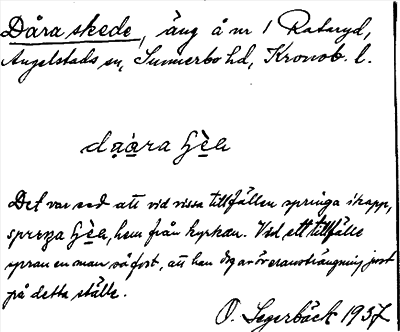 Dåra skede, äng å nr 1 Rataryd,
Angelstads sn, Sunnerbo hd, Kronob. l.
dạạ̊ra ʃɛ̀ḁ
Det var sed att vid vissa tillfällen springa i kapp,
hem från kyrkan. Vid ett tillfälle
sprang en man så fort, att han dog av överansträngning just
på detta ställe.
O. Segerbäck 1937